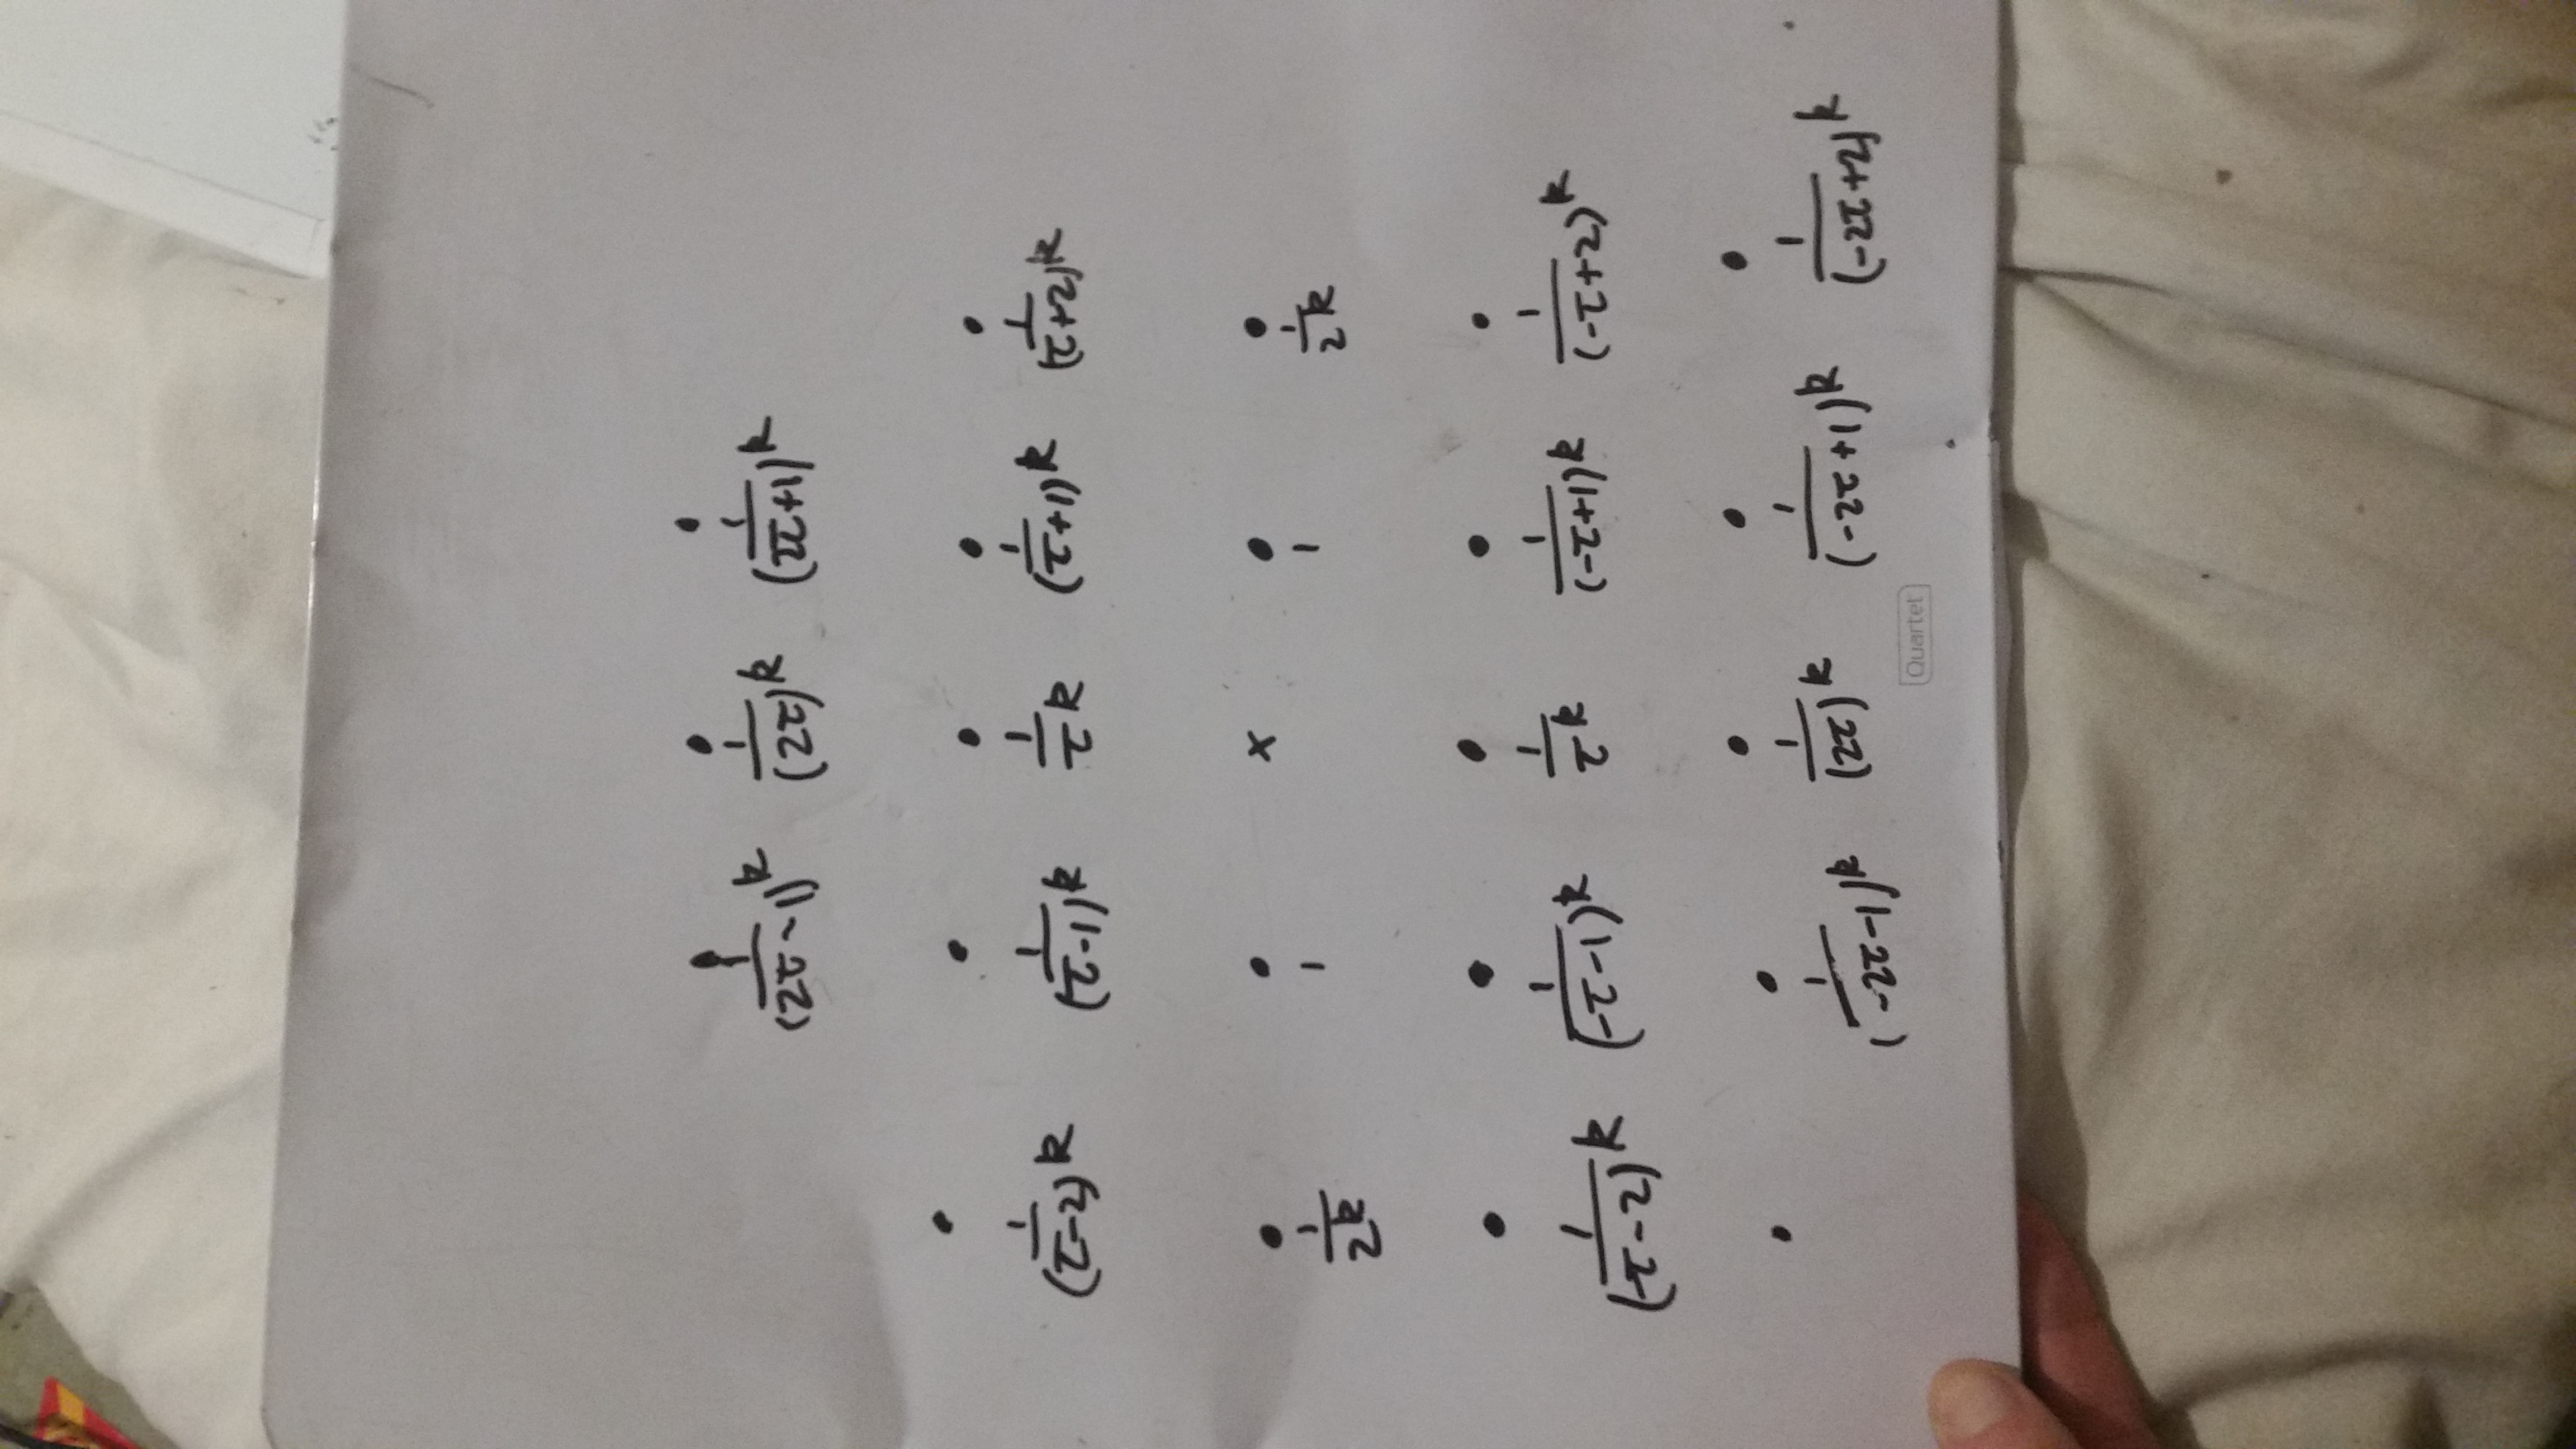 1/(2τ-1)^k 1/(2τ)^k 1/(2τ+1)^k
1/(τ-2)^k 1/(τ-1)^k 1/τ^k 1/(τ+1)^k 1/(τ+2)^k
1/2^k 1 × 1 1/2^k
1/(-τ-2)^k 1/(-τ-1)^k 1/τ^k 1/(-τ+1)^k 1/(-τ+2)^k
1/(-2τ-1)^k 1/(2τ)^k 1/(-2τ+1)^k 1/(-2τ+2)^k
Quartet